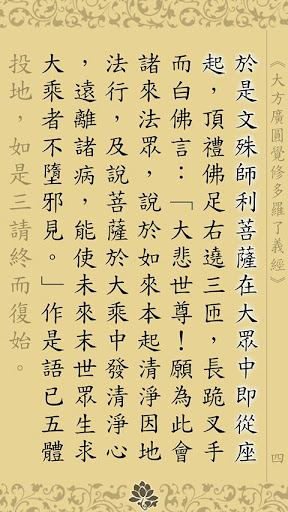 《大方廣圓覺修多羅了義經》
四
於是文殊師利菩薩在大眾中即從座
起，頂禮佛足右遶三匝，長跪叉手
而白佛言：「大悲世尊！願為此會
諸來法眾，說於如來本起清淨因地
法行，及說菩薩於大乘中發清淨心
，遠離諸病，能使未來末世眾生求
大乘者不墮邪見。」作是語已五體
投地，如是三請終而復始。